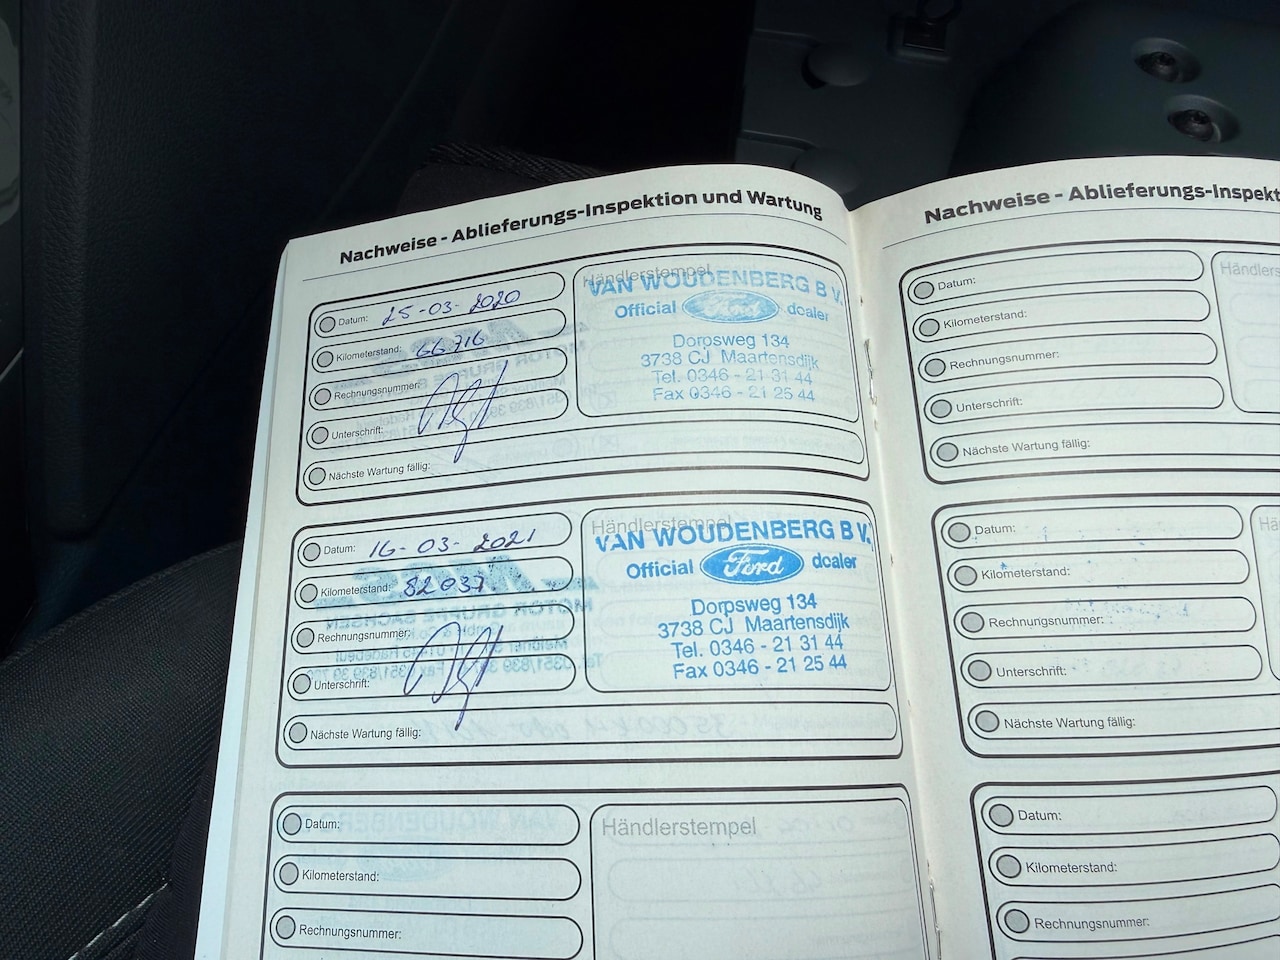 Nachweise - Ablieferungs-Inspektion und Wartung
Datum: 25-03-2020
Kilometerstand: 66 716
Rechnungsnummer:
Unterschrift:
Nächste Wartung fällig:
Händlerstempel
VAN WOUDENBERG B.V.
Official Ford dealer
Dorpsweg 134
3738 CJ Maartensdijk
Tel. 0346 - 21 31 44
Fax 0346 - 21 25 44
Datum: 16-03-2021
Kilometerstand: 82 037
Rechnungsnummer:
Unterschrift:
Nächste Wartung fällig:
Händlerstempel
VAN WOUDENBERG B.V.
Official Ford dealer
Dorpsweg 134
3738 CJ Maartensdijk
Tel. 0346 - 21 31 44
Fax 0346 - 21 25 44
Datum:
Kilometerstand:
Rechnungsnummer:
Händlerstempel
Nachweise - Ablieferungs-Inspekt
Datum:
Kilometerstand:
Rechnungsnummer:
Unterschrift:
Nächste Wartung fällig:
Händlers
Datum:
Kilometerstand:
Rechnungsnummer:
Unterschrift:
Nächste Wartung fällig:
Hä
Datum:
Kilometerstand:
Rechnungsnummer: